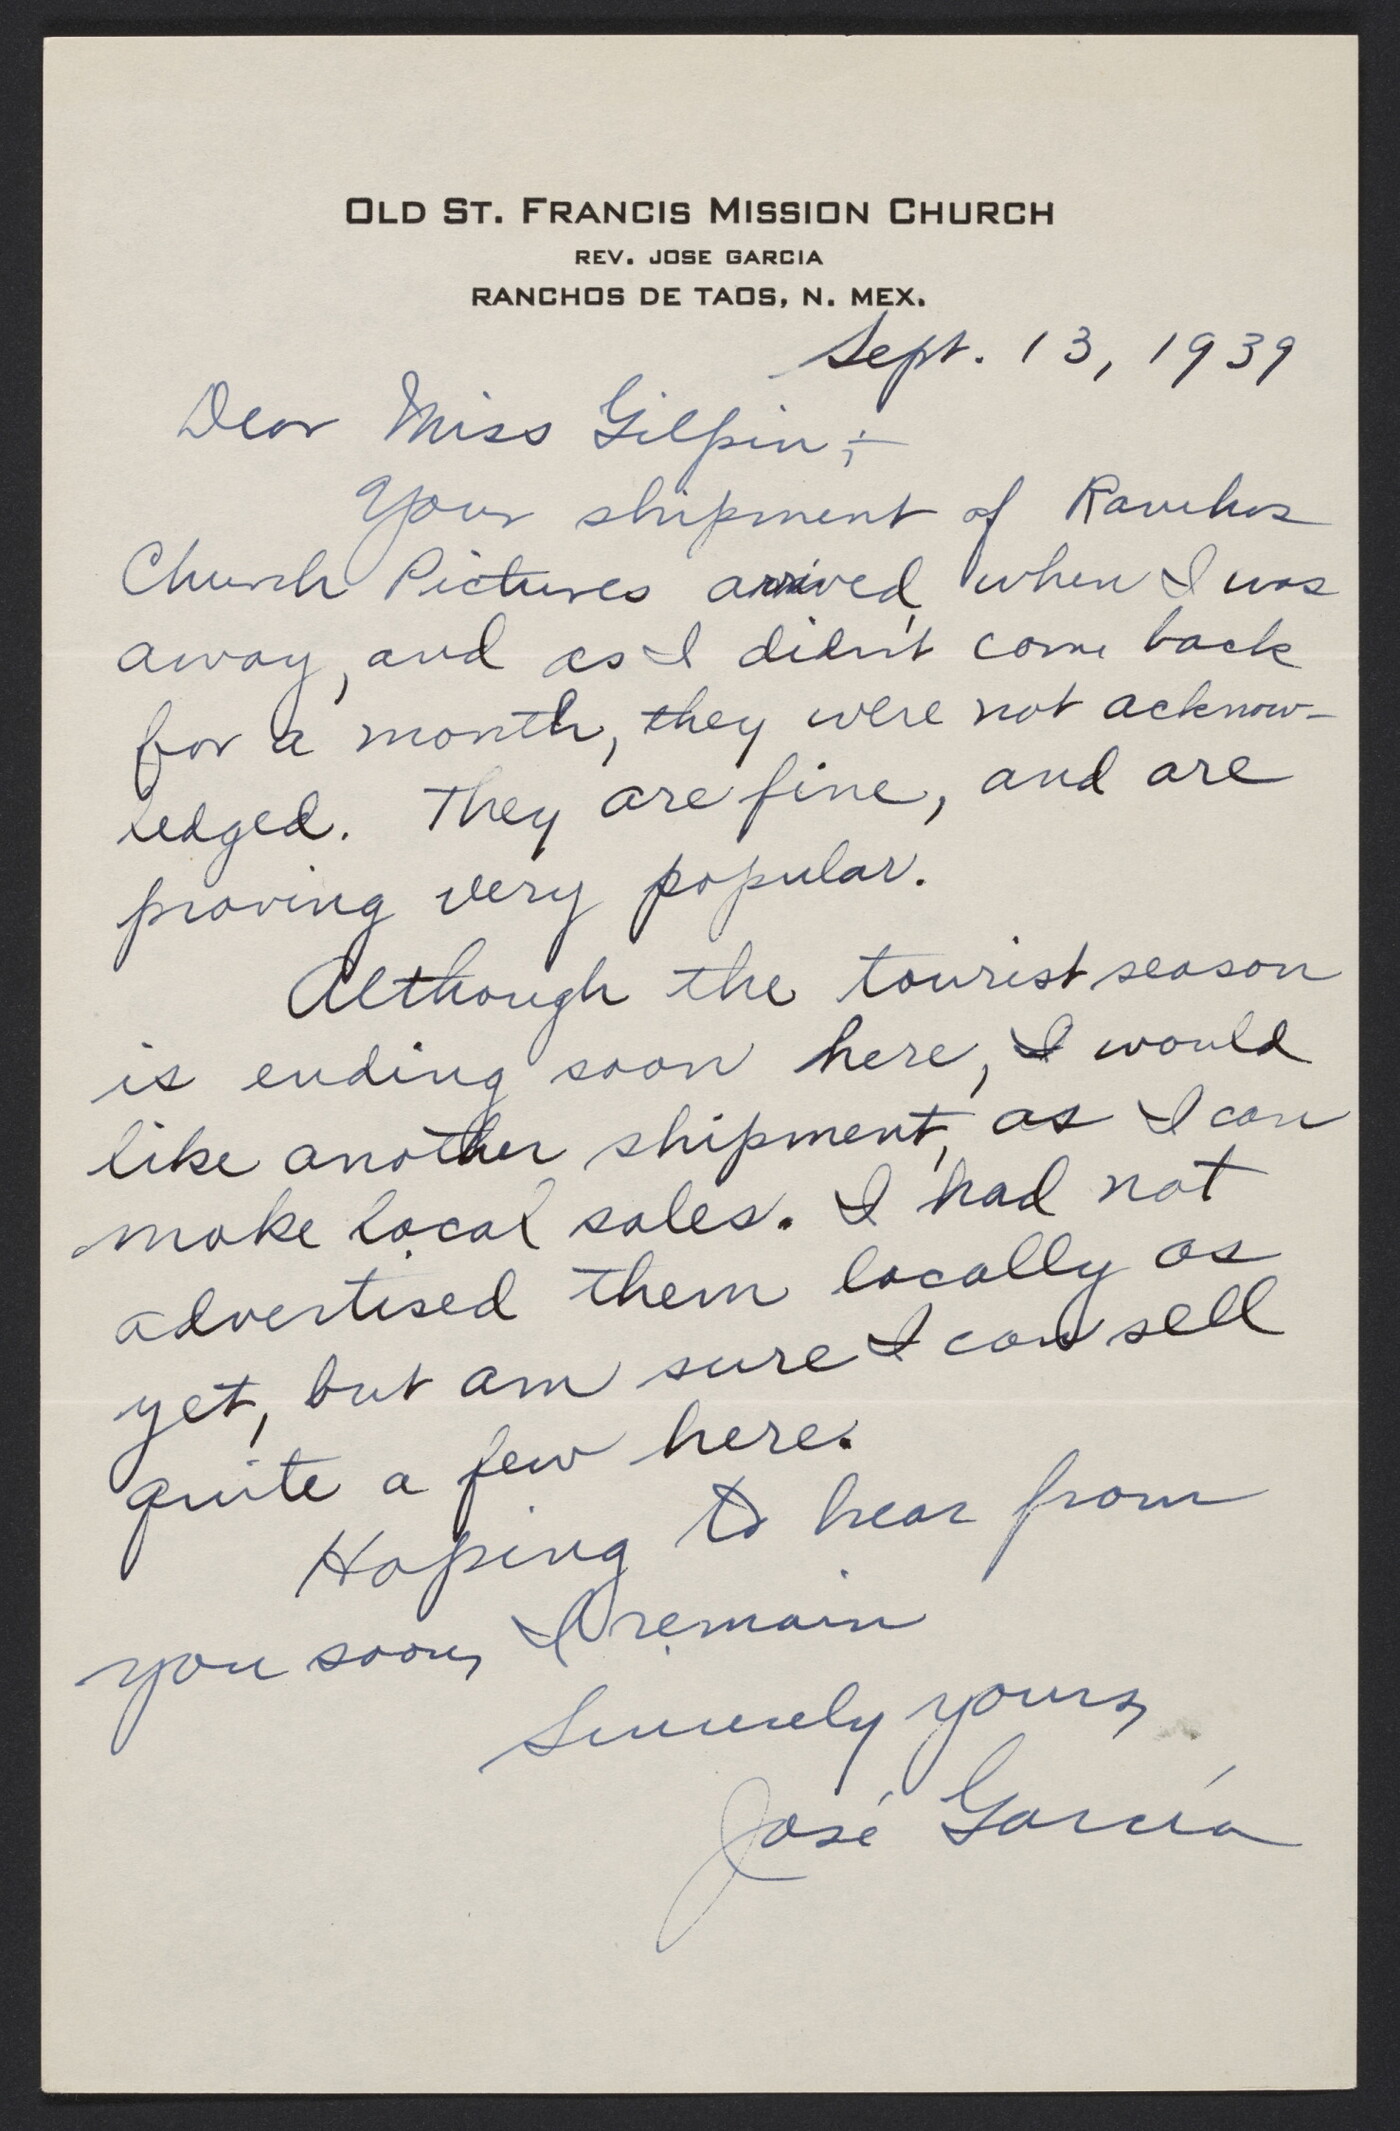 OLD ST. FRANCIS MISSION CHURCH
REV. JOSE GARCIA
RANCHOS DE TAOS, N. MEX.
Sept. 13, 1939
Dear Miss Gilpin;-
Your shipment of Ranchos
Church Pictures arrived, when I was
away, and as I didn't come back
for a month, they were not acknow-
ledged. They are fine, and are
proving very popular.
Although the tourist season
is ending soon here, I would
like another shipment, as I can
make local sales. I had not
advertised them locally as
yet, but am sure I can sell
quite a few here.
Hoping to hear from
you soon, I remain
Sincerely yours,
José García